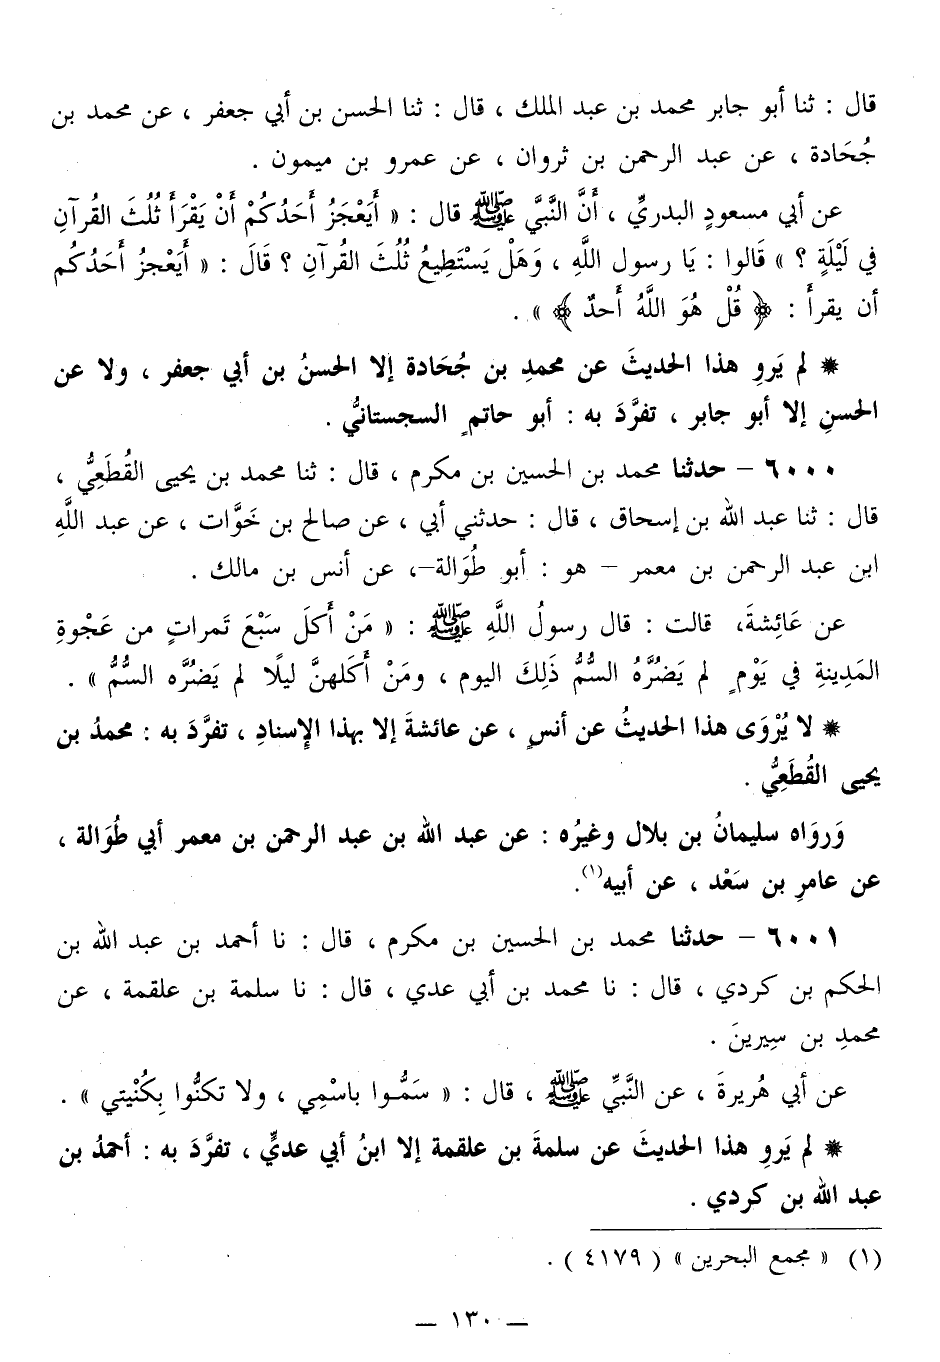 قال : ثنا أبو جابر محمد بن عبد الملك ، قال : ثنا الحسن بن أبي جعفر ، عن محمد بن
جُحَادة ، عن عبد الرحمن بن ثروان ، عن عمرو بن ميمون .
عن أبي مسعودٍ البدريِّ ، أَنَّ النَّبيَّ ﷺ قال : « أَيَعْجَزُ أَحَدُكُمْ أَنْ يَقْرَأَ ثُلُثَ القُرآنِ
في لَيْلَةٍ ؟ » قَالوا : يَا رسول اللَّهِ ، وَهَلْ يَسْتَطِيعُ ثُلُثَ القُرآنِ ؟ قَالَ : « أَيَعْجزُ أَحَدُكُم
أن يقرأَ : ﴿ قُلْ هُوَ اللَّهُ أَحدٌ ﴾ » .
* لم يَروِ هذا الحديثَ عن محمدِ بن جُحَادة إلا الحسنُ بن أبي جعفر ، ولا عن
الحسنِ إلا أبو جابر ، تفرَّدَ به : أبو حاتمٍ السجستانيُّ .
٦٠٠٠ - حدثنا محمد بن الحسين بن مكرم ، قال : ثنا محمد بن يحيى القُطَعِيُّ ،
قال : ثنا عبد الله بن إسحاق ، قال : حدثني أبي ، عن صالح بن خَوَّات ، عن عبد اللَّهِ
ابن عبد الرحمن بن معمر - هو : أبو طُوَالة-، عن أنس بن مالك .
عن عَائِشةَ، قالت : قال رسولُ اللَّهِ ﷺ : « مَنْ أَكلَ سَبْعَ تَمراتٍ من عَجْوةِ
المَدِينةِ في يَوْمٍ لم يَضرَّهُ السُّمُّ ذَلِكَ اليوم ، ومَنْ أَكَلهنَّ ليلًا لم يَضرَّه السُّمُّ » .
* لا يُرْوَى هذا الحديثُ عن أنسٍ ، عن عائشةَ إلا بهذا الإِسنادِ ، تفرَّدَ به : محمدُ بن
يحيى القُطَعِيُّ .
وَروَاه سليمانُ بن بلال وغيرُه : عن عبد الله بن عبد الرحمن بن معمر أبي طُوَالة ،
عن عامرِ بن سَعْد ، عن أبيه(١).
٦٠٠١ - حدثنا محمد بن الحسين بن مكرم ، قال : نا أحمد بن عبد الله بن
الحكم بن كردي ، قال : نا محمد بن أبي عدي ، قال : نا سلمة بن علقمة ، عن
محمدِ بن سِيرينَ .
عن أبي هُريرةَ ، عن النَّبيِّ ﷺ ، قال : « سَمُّوا باسْمِي ، ولا تكنُّوا بِكُنْيتي » .
* لم يَروِ هذا الحديثَ عن سلمةَ بن علقمة إلا ابنُ أبي عديٍّ ، تفرَّدَ به : أحمدُ بن
عبد الله بن كردي .
(١) « مجمع البحرين » ( ٤١٧٩ ) .
— ١٣٠ —